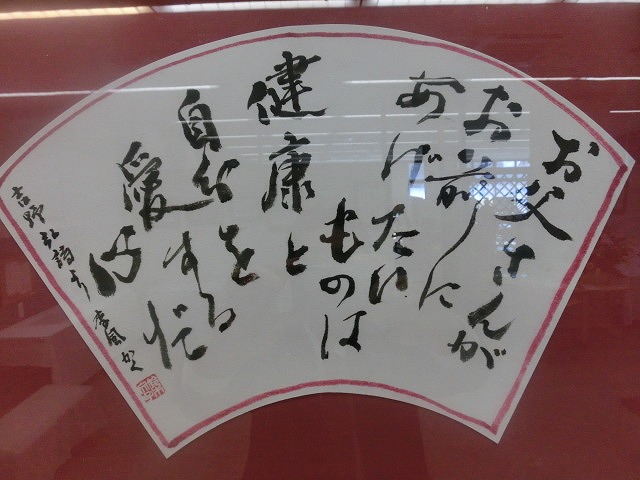 お父さんが
お前に
あげたい
ものは
健康と
自分を
愛する
心だ
吉野弘詩より
かく